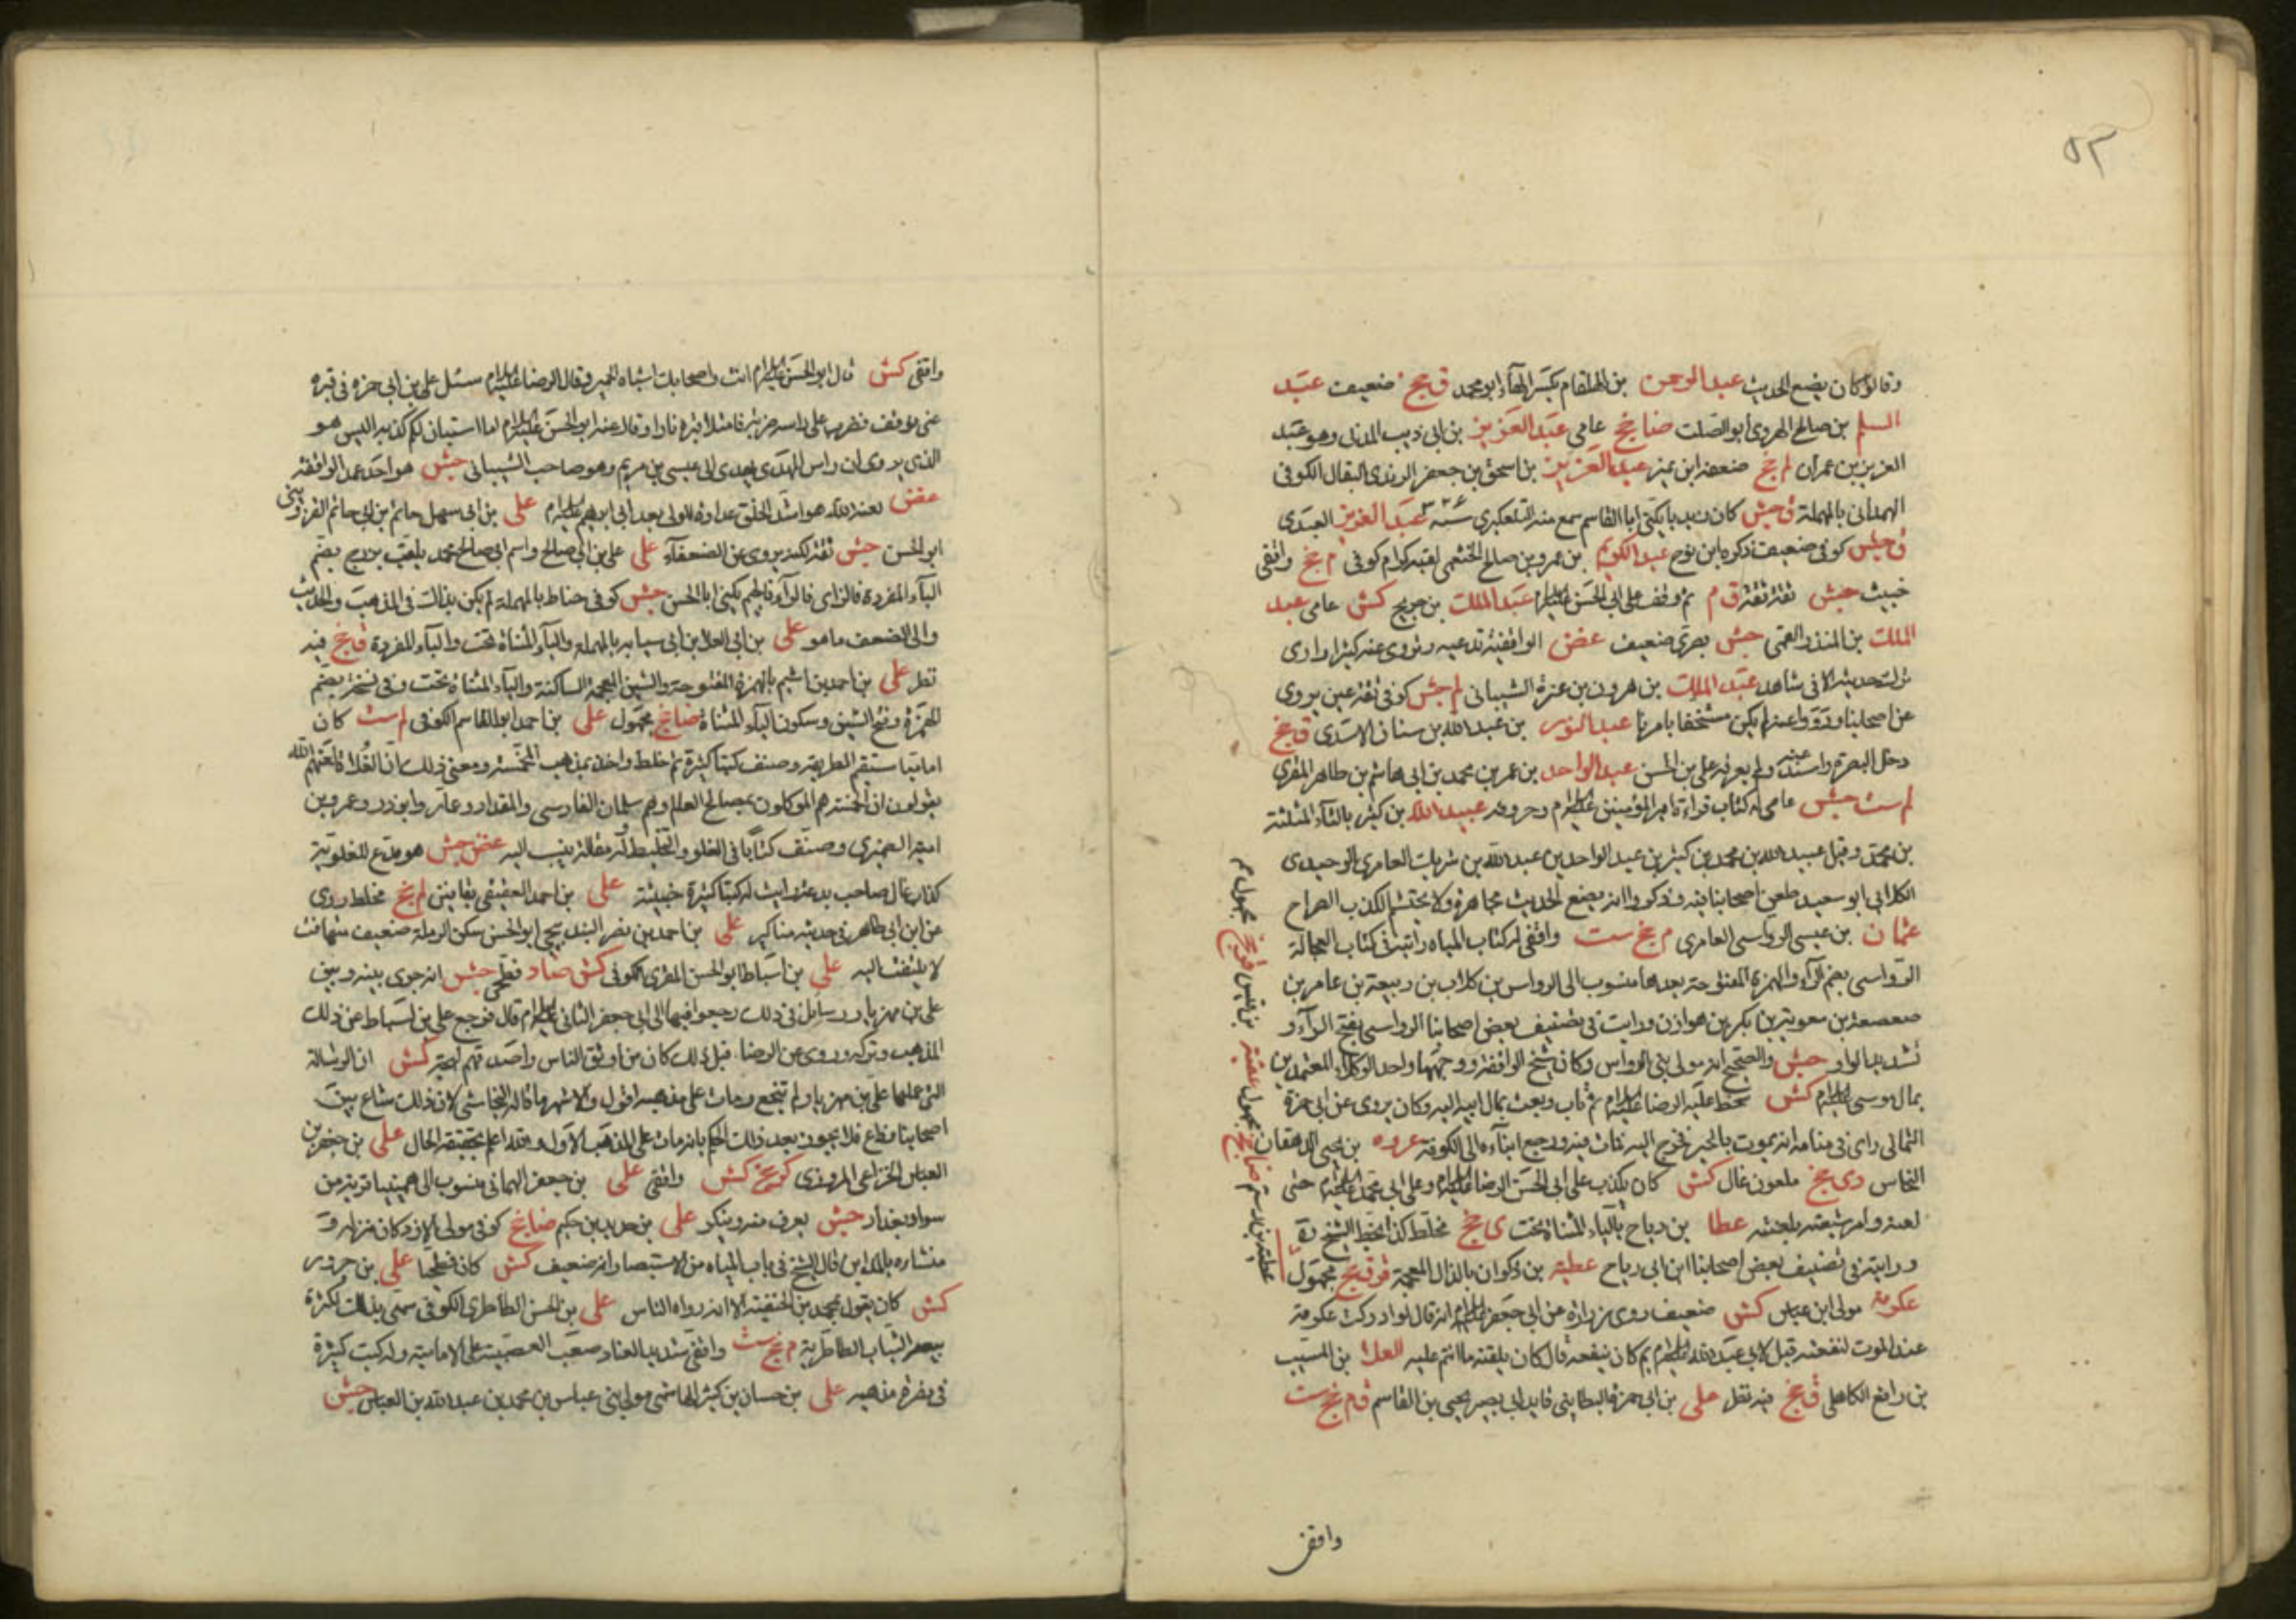 ٥٣
وقالوا كان يضع الحديث عبد الرحمن بن الهلقام بكسر الهاء ابو محمد ق جخ ضعيف عبد
السلم بن صالح الهروى ابو الصلت ضا جخ عامى عبد العزيز بن ابى ذيب المدنى وهو عبد
العزيز بن عمران لم جخ ضعفه ابن نمير عبد العزيز بن اسحق بن جعفر الزيدى البقال الكوفى
الهمدانى بالمهملة ق جش كان زيديا يكنى ابا القاسم سمع منه التلعكبرى سنة ٣٢٦ عبد العزيز العبدى
ق جش كوفى ضعيف ذكره ابن نوح عبد الكريم بن عمرو بن صالح الخثعمى لقبه كرام كوفى م جخ واقفى
خبيث جش ثقة ثقة ق م ثم وقف على ابى الحسن عليه السلام عبد الملك بن جريج كش عامى عبد
الملك بن المنذر العمى جش بصرى ضعيف غض الواقفية تدعيه وتروى عنه كثيرا وارى
ترك حديثه الا فى شاهد عبد الملك بن هرون بن عنزة الشيبانى لم جش كوفى ثقة عين يروى
عن اصحابنا ورووا عنه لم يكن متحققا بامرنا عبد النور بن عبد الله بن سنان الاسدى ق جخ
دخل البصرة واسند عنه ولم يعرفه على بن الحسن عبد الواحد بن عمر بن محمد بن ابى هاشم بن طاهر المقرى
لم ست جش عامى له كتاب قراءة امير المؤمنين عليه السلام وحروفه عبيد الله بن كثير بالثاء المثلثة
بن محمد وقيل عبيد الله بن محمد بن كثير بن عبد الواحد بن عبد الله بن شريك العامرى الوحيدى
الكلابى ابو سعيد طعن اصحابنا فيه وذكروا انه يضع الحديث مجاهرة ولا يحتشم الكذب الصراح
عثمان بن عيسى الرواسى العامرى م جخ ست واقفى له كتاب المياه رايته فى كتاب العجالة
الرواسى بضم الراء والهمزة المفتوحة بعدها منسوب الى الرواس بن كلاب بن ربيعة بن عامر بن
صعصعة بن معوية بن بكر بن هوازن ورايت فى تصنيف بعض اصحابنا الرواسى بفتح الراء و
تشديد الواو جش والصحيح انه مولى بنى الرواس وكان شيخ الواقفة ووجهها واحد الوكلاء المعتمدين
بمال موسى عليه السلام كش سخط عليه الرضا عليه السلام ثم تاب وبعث بمال ابيه اليه وكان يروى عن ابى حمزة
الثمالى راى فى منامه انه يموت بالحير فخرج اليه فمات فيه ورجع ابناءه الى الكوفة عروه بن يحيى الدهقان
النخاس دى جخ ملعون غال كش كان يكذب على ابى الحسن الرضا عليه السلام وعلى ابى محمد عليه السلام حتى
لعنه وامر شيعته بلعنته عطا بن رياح بالياء المثناة تحت ى جخ مخلط كذا بخط الشيخ ره
ورايته فى تصنيف بعض اصحابنا ابن ابى رباح عطية بن ذكوان بالذال المعجمة ق جخ مجهول
عكرمة مولى ابن عباس كش ضعيف روى زرارة عن ابى جعفر عليه السلام انه قال لو ادركت عكرمة
عند الموت لنفعته قيل لابى عبد الله عليه السلام بم كان ينفعه قال كان يلقنه ما انتم عليه العلا بن المسيب
بن رافع الكاهلى ق جخ فيه نظر على بن ابى حمزة البطاينى قايد ابى بصير يحيى بن القاسم ق م جخ ست
عطية بن رستم ضا جخ مجهول عقبة بن قيس ق جخ مجهول
واقفى
واقفى كش قال ابو الحسن عليه السلام انت واصحابك اشباه الحمير وقال الرضا عليه السلام سئل على بن ابى حمزة فى قبره
عنى فوقف فضرب على راسه ضربة فامتلا قبره نارا وقال عنه ابو الحسن عليه السلام اما استبان لكم كذبه اليس هو
الذى يروى ان راس المهدى يهدى الى عيسى بن مريم وهو صاحب الشيبانى جش هو احد عمد الواقفة
غض لعنه الله هو اشد الخلق عداوة للولى بعد ابى ابرهيم عليه السلام على بن ابى سهل حاتم بن ابى حاتم القزوينى
ابو الحسن جش ثقة لكنه يروى عن الضعفاء على على بن ابى صالح واسم ابى صالح محمد يلقب بزرج بضم
الباء المفردة فالزاى فالراء فالجيم يكنى ابا الحسن جش كوفى حناط بالمهملة لم يكن بذاك فى المذهب والحديث
والى الضعف ما هو على بن ابى العلا بن ابى سيابه بالمهملة والياء المثناة تحت والباء المفردة ق جخ فيه
نظر على بن احمد بن اشيم بالهمزة المفتوحة والشين المعجمة الساكنة والياء المثناة تحت وفى نسخة بضم
الهمزة وفتح الشين وسكون الياء المثناة ضا جخ مجهول على بن احمد ابو القاسم الكوفى لم ست كان
اماميا مستقيم الطريقة وصنف كتبا كثيرة ثم خلط واظهر مذهب المخمسة ومعنى ذلك ان الغلاة لعنهم الله
يقولون ان الخمسة هم الموكلون بمصالح العالم وهم سلمان الفارسى والمقداد وعمار وابو ذر وعمرو بن
امية الضمرى وصنف كتابا فى الغلو والتخليط له مقالة ينسب اليه غض جش هو مدع للعلوية
كذاب غال صاحب بدعة رايت له كتبا كثيرة خبيثة على بن احمد العقيقى بقافين لم جخ مخلط روى
عن ابن ابى طاهر فى حديثه مناكير على بن احمد بن نصر البندنيجى ابو الحسن سكن الرملة ضعيف متهافت
لا يلتفت اليه على بن اسباط ابو الحسن المقرى الكوفى كش ضا د فطحى جش انه جرى بينه وبين
على بن مهزيار رسايل فى ذلك رجعوا فيها الى ابى جعفر الثانى عليه السلام قال فرجع على بن اسباط عن ذلك
المذهب وتركه وروى عن الرضا قبل ذلك كان من اوثق الناس واصدقهم لهجة كش ان الرسالة
التى عملها على بن مهزيار لم تنجع ومات على مذهبه اقول والاشهر ما قاله النجاشى لان ذلك شاع بين
اصحابنا وذاع فلا يجوز بعد ذلك الحكم بانه مات على المذهب الاول والله اعلم بحقيقة الحال على بن جعفر بن
العباس الخزاعى المروزى كر جخ كش واقفى على بن جعفر الهمانى منسوب الى همينيا قرية من
سواد بغداد جش يعرف منه وينكر على بن حديد بن حكيم ضا جخ كوفى مولى الازد وكان منزله و
منشاه بالمداين قال الشيخ فى باب المياه من الاستبصار انه ضعيف كش كان فطحيا على بن حزور
كش كان يقول بمحمد بن الحنفية الا انه رواه الناس على بن الحسن الطاطرى الكوفى سمى بذلك لكثرة
بيعه الثياب الطاطرية م جخ ست واقفى شديد العناد صعب العصبية على الامامية وله كتب كثيرة
فى نصرة مذهبه على بن حسان بن كثير الهاشمى مولى بنى عباس بن محمد بن عبد الله بن العباس جش